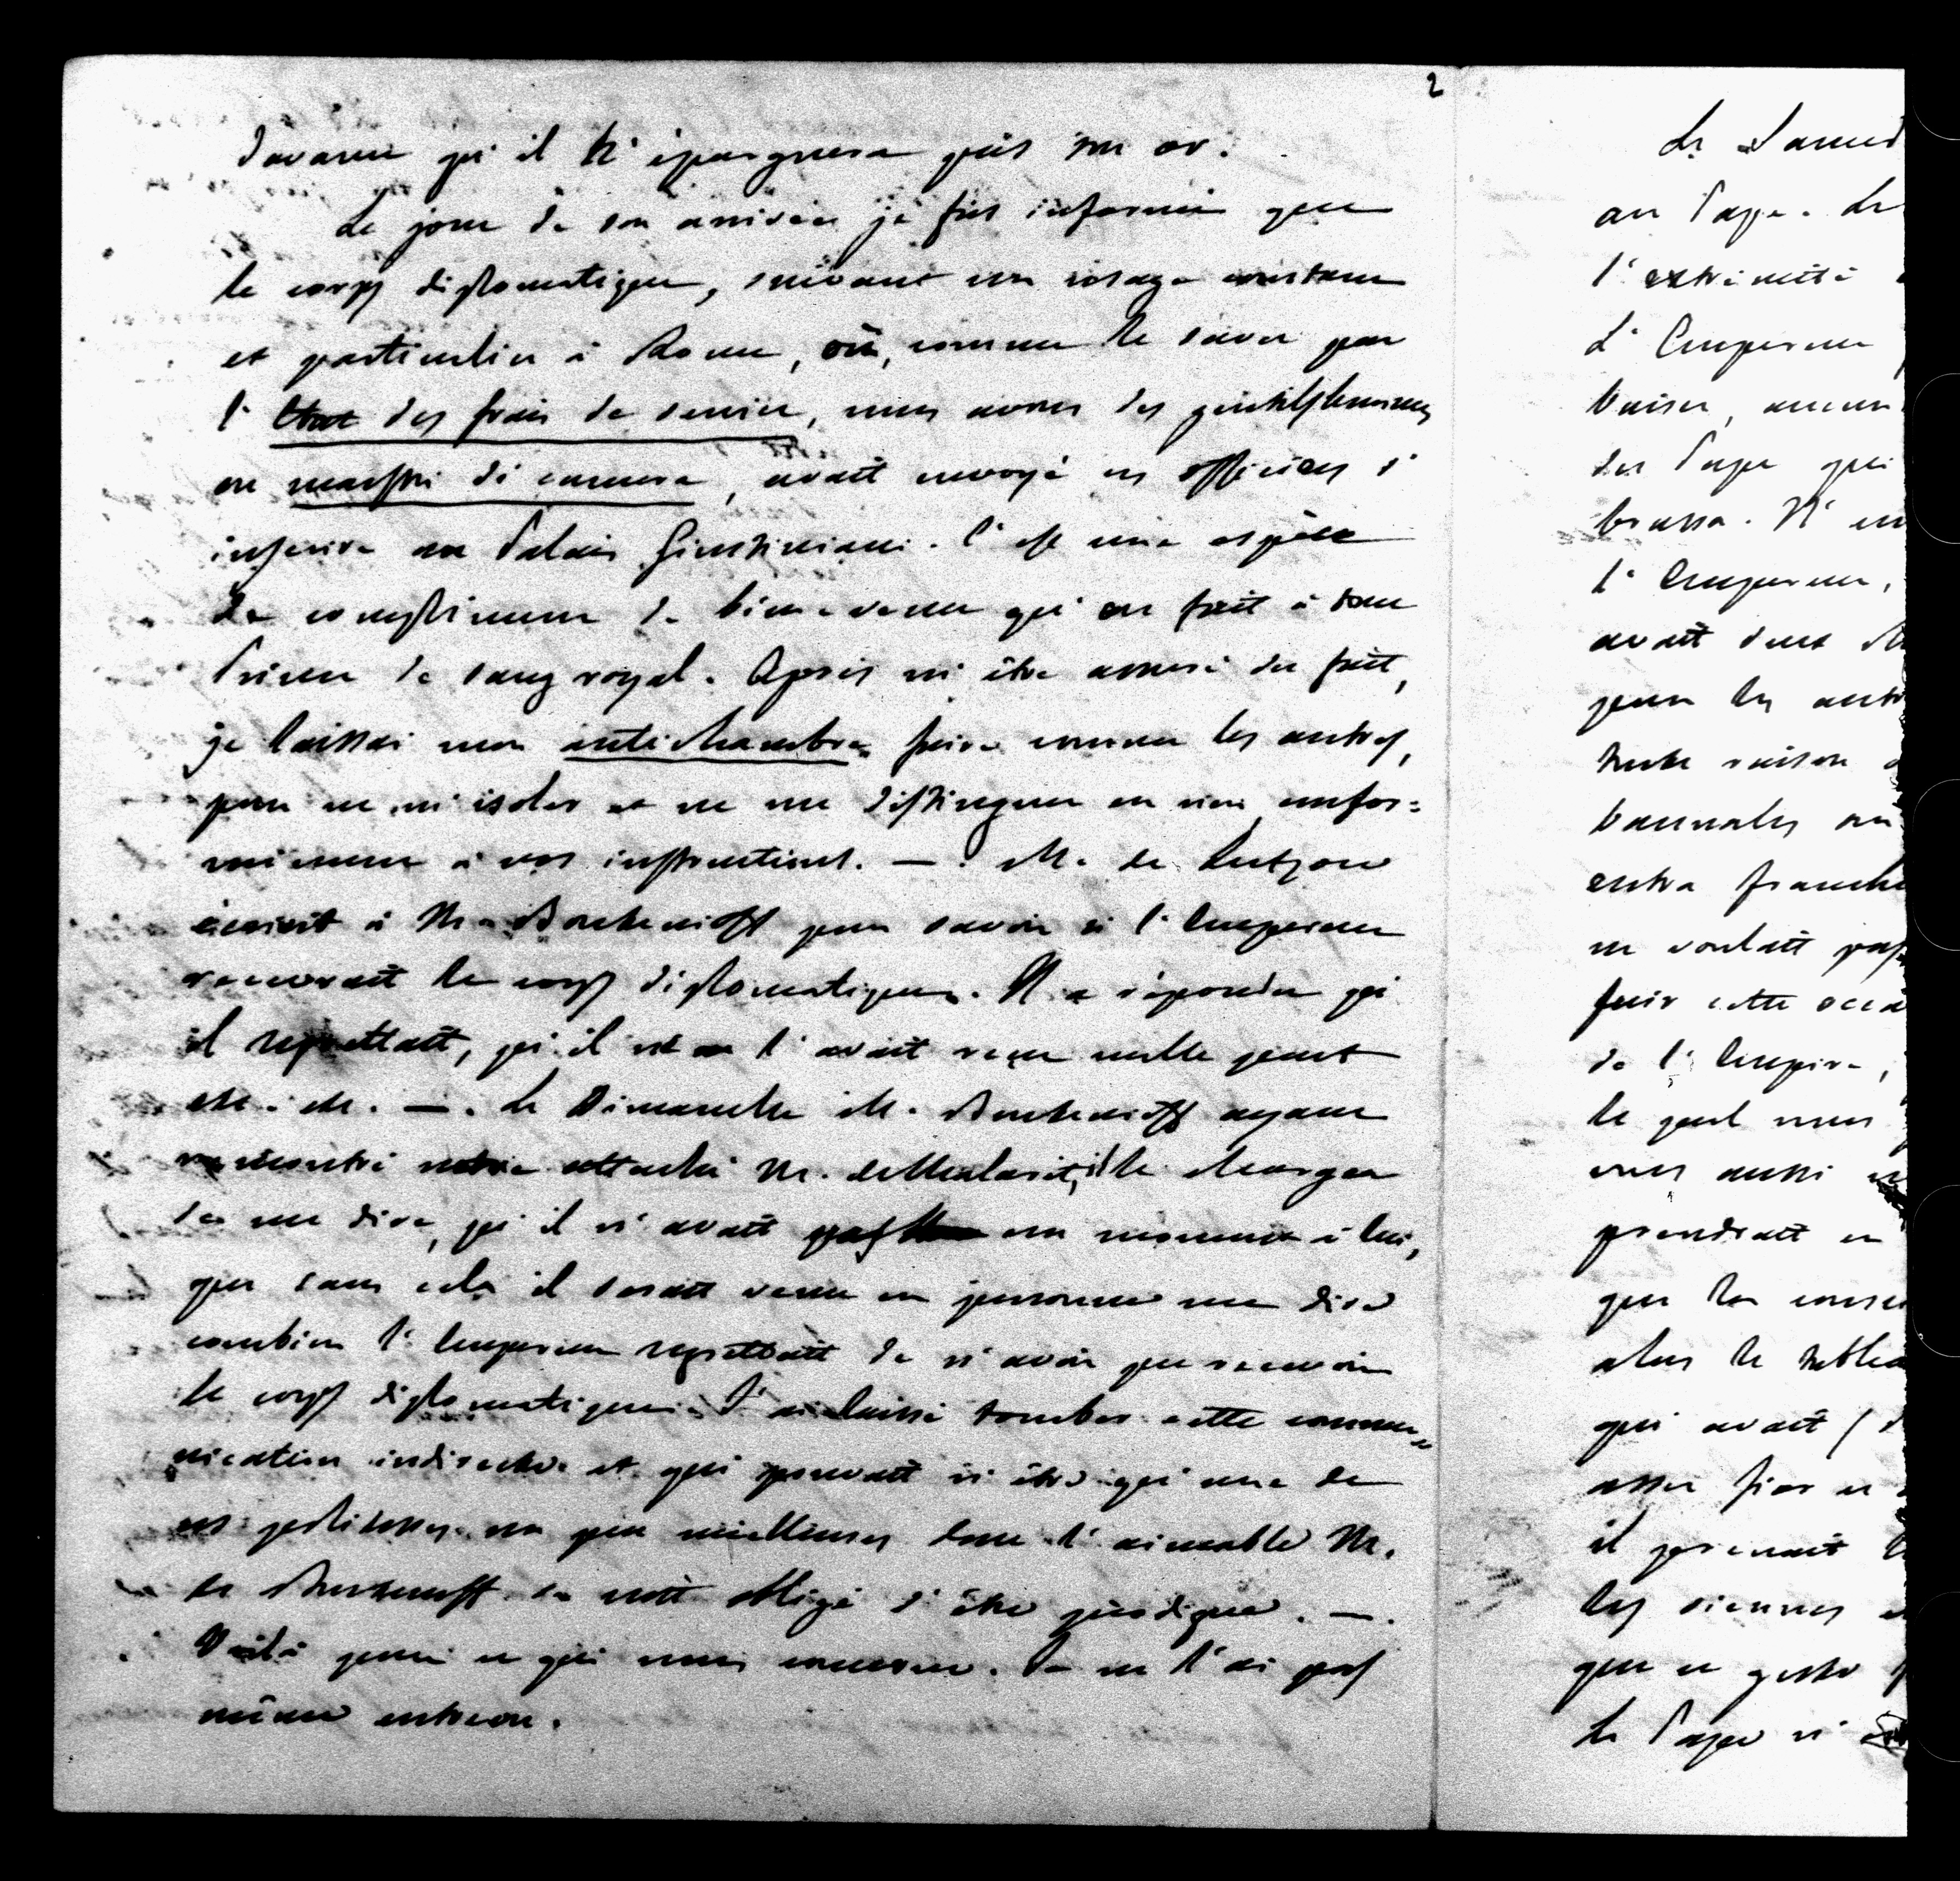 2
d'avance qu'il n'épargnera pas son or.
Le jour de son arrivée je fus informé que
le corps diplomatique, suivant un usage constant
et particulier à Rome, où, comme le savez par
l'état des frais de service, nous avons des gentilshommes
ou maestri di camera, avait envoyé ces officiers s'
inscrire au Palais Giustiniani. C'est une espèce
de compliment de bienvenue qu'on fait à tout
Prince de sang royal. Après m'être assuré du fait,
je laissai mon antichambre faire comme les autres,
pour ne m'isoler et ne me distinguer en rien confor=
mément à vos instructions. — . M. de Lutzow
écrivit à Mr. Boutenieff pour savoir si l'Empereur
recevrait le corps diplomatique. Il a répondu qu'
il regrettait, qu'il ne l'avait reçu nulle part
etc. etc. — . Le Dimanche M. Boutenieff ayant
rencontré notre attaché Mr. de Malaret, il le chargea
de me dire, qu'il n'avait pas un moment à lui,
que sans cela il serait venu en personne me dire
combien l'Empereur regrettait de n'avoir pu recevoir
le corps diplomatique. J'ai laissé tomber cette commu=
nication indirecte et qui pouvait n'être qu'une de
ces politesses un peu mielleuses dont l'aimable Mr.
de Boutenieff se croit obligé d'être prodigue. — .
Voilà pour ce qui nous concerne. Je ne l'ai pas
même entrevu.
Le Samed
au Pape. Le
l'extrémité
L'Empereur
baiser, aucun
du Pape qui
brassa. Il en
l'Empereur,
avait dans
pour les autr
toute raison
bannales ou
entra franche
ne voulait pas
fuir cette occa
de l'Empire,
le quel nous
vous aussi
prendrait en
que les conse
alors le tablea
qui avait (
assez fier et
il prenait
les siennes
que ce geste
Le Pape n'